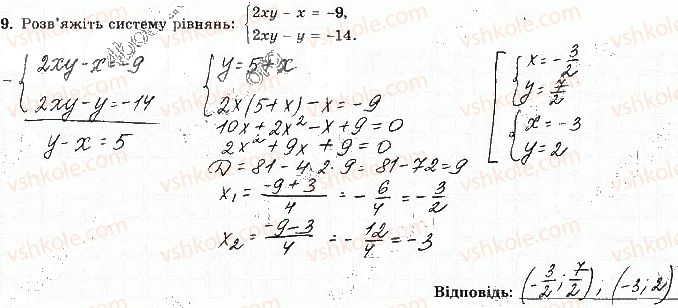 9. Розв'яжіть систему рівнянь: { 2xy – x = –9,
2xy – y = –14.
– { 2xy – x = –9
2xy – y = –14
y – x = 5
{ y = 5 + x
2x(5 + x) – x = –9
10x + 2x² – x + 9 = 0
2x² + 9x + 9 = 0
D = 81 – 4 · 2 · 9 = 81 – 72 = 9
x₁ = (–9 + 3)/4 = –6/4 = –3/2
x₂ = (–9 – 3)/4 = –12/4 = –3
[ { x = –3/2
y = 7/2
{ x = –3
y = 2
Відповідь: (–3/2; 7/2), (–3; 2)
vshkole.com